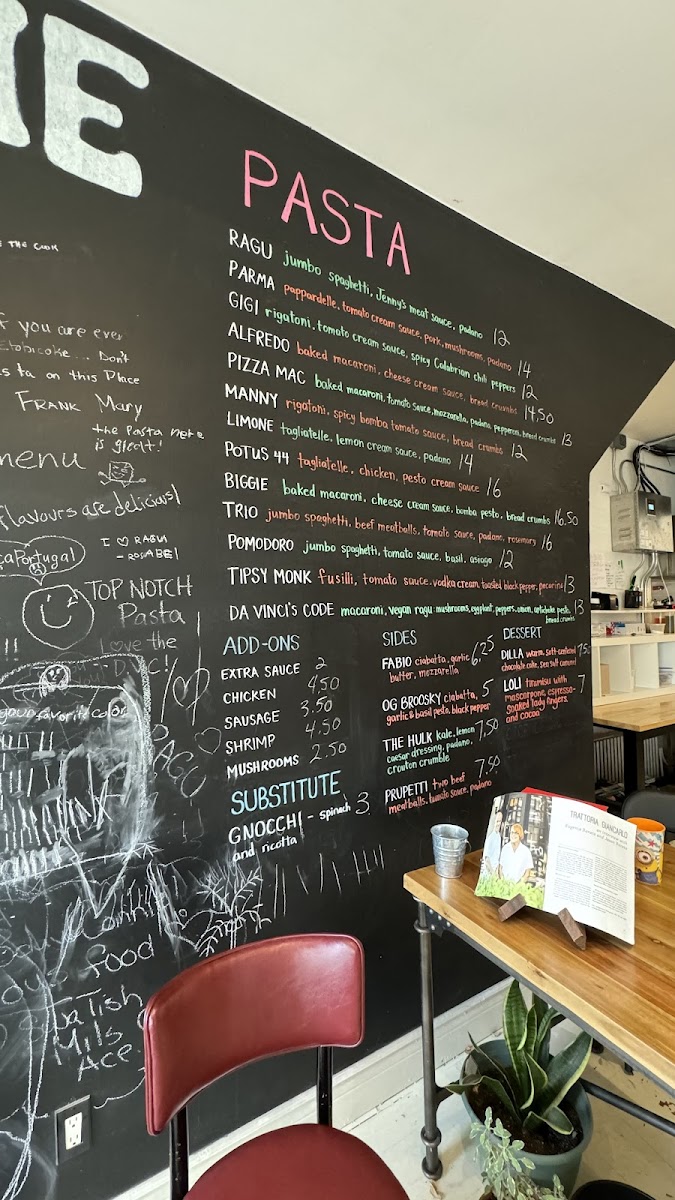 IE
E THE COOK
PASTA
RAGU jumbo spaghetti, Jenny's meat sauce, padano 12
PARMA pappardelle, tomato cream sauce, pork, mushrooms, padano 14
GIGI rigatoni, tomato cream sauce, spicy Calabrian chili peppers 12
ALFREDO baked macaroni, cheese cream sauce, bread crumbs 14.50
PIZZA MAC baked macaroni, tomato sauce, mozzarella, padano, pepperoni, bread crumbs 13
MANNY rigatoni, spicy bomba tomato sauce, bread crumbs 12
LIMONE tagliatelle, lemon cream sauce, padano 14
POTUS 44 tagliatelle, chicken, pesto cream sauce 16
BIGGIE baked macaroni, cheese cream sauce, bomba pesto, bread crumbs 16.50
TRIO jumbo spaghetti, beef meatballs, tomato sauce, padano, rosemary 16
POMODORO jumbo spaghetti, tomato sauce, basil, asiago 12
TIPSY MONK fusilli, tomato sauce, vodka cream, toasted black pepper, pecorino 13
DA VINCI'S CODE macaroni, vegan ragu: mushrooms, eggplant, peppers, onion, artichoke pesto, bread crumbs 13
ADD-ONS
EXTRA SAUCE 2
CHICKEN 4.50
SAUSAGE 3.50
SHRIMP 4.50
MUSHROOMS 2.50
SUBSTITUTE
GNOCCHI - spinach 3
and ricotta
SIDES
FABIO ciabatta, garlic 6.25
butter, mozzarella
OG BROOSKY ciabatta, 5
garlic & basil pesto, black pepper
THE HULK kale, lemon 7.50
caesar dressing, padano,
crouton crumble
PRUPETTI two beef 7.50
meatballs, tomato sauce, padano
DESSERT
DILLA warm, soft-centered 7.5
chocolate cake, sea salt caramel
LOLI tiramisu with 7
mascarpone, espresso-
soaked lady fingers,
and cocoa
f you are ever
Etobicoke... Don't
s ta on this Place
FRANK Mary
the Pasta here
is great!
menu
flavours are delicious!
I ♡ RAGU
- ROSABEL
Portugal
TOP NOTCH
Pasta
Love the
!!
your favorite color
Food
Mils
Ace
TRATTORIA GIANCARLO